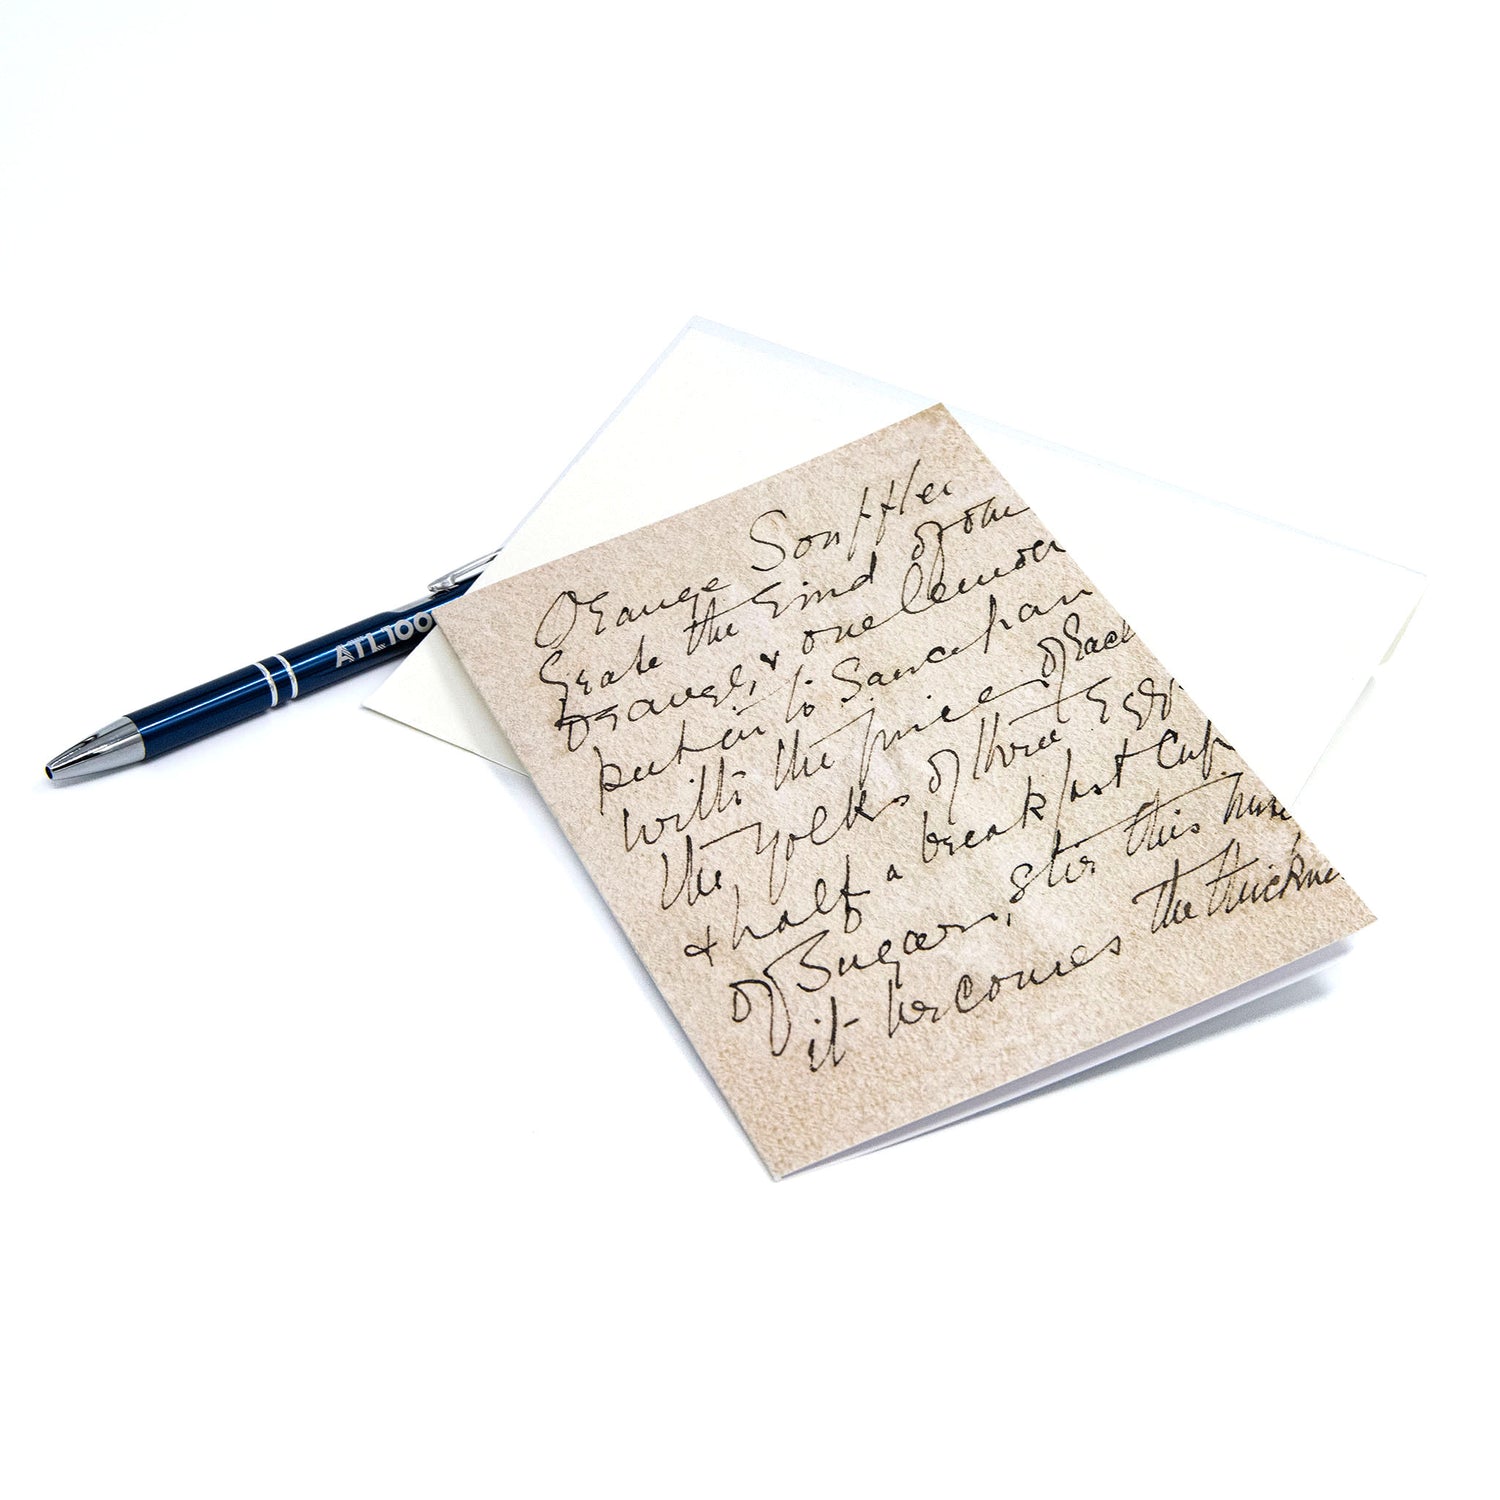 ATL100
Orange Souffler
Grate the Rind of one
orange, & one lemon
put in to Saucepan
with the juice of Each
the yolks of three Eggs
& half a breakfast Cup
of Sugar, Stir this
it becomes the thickne